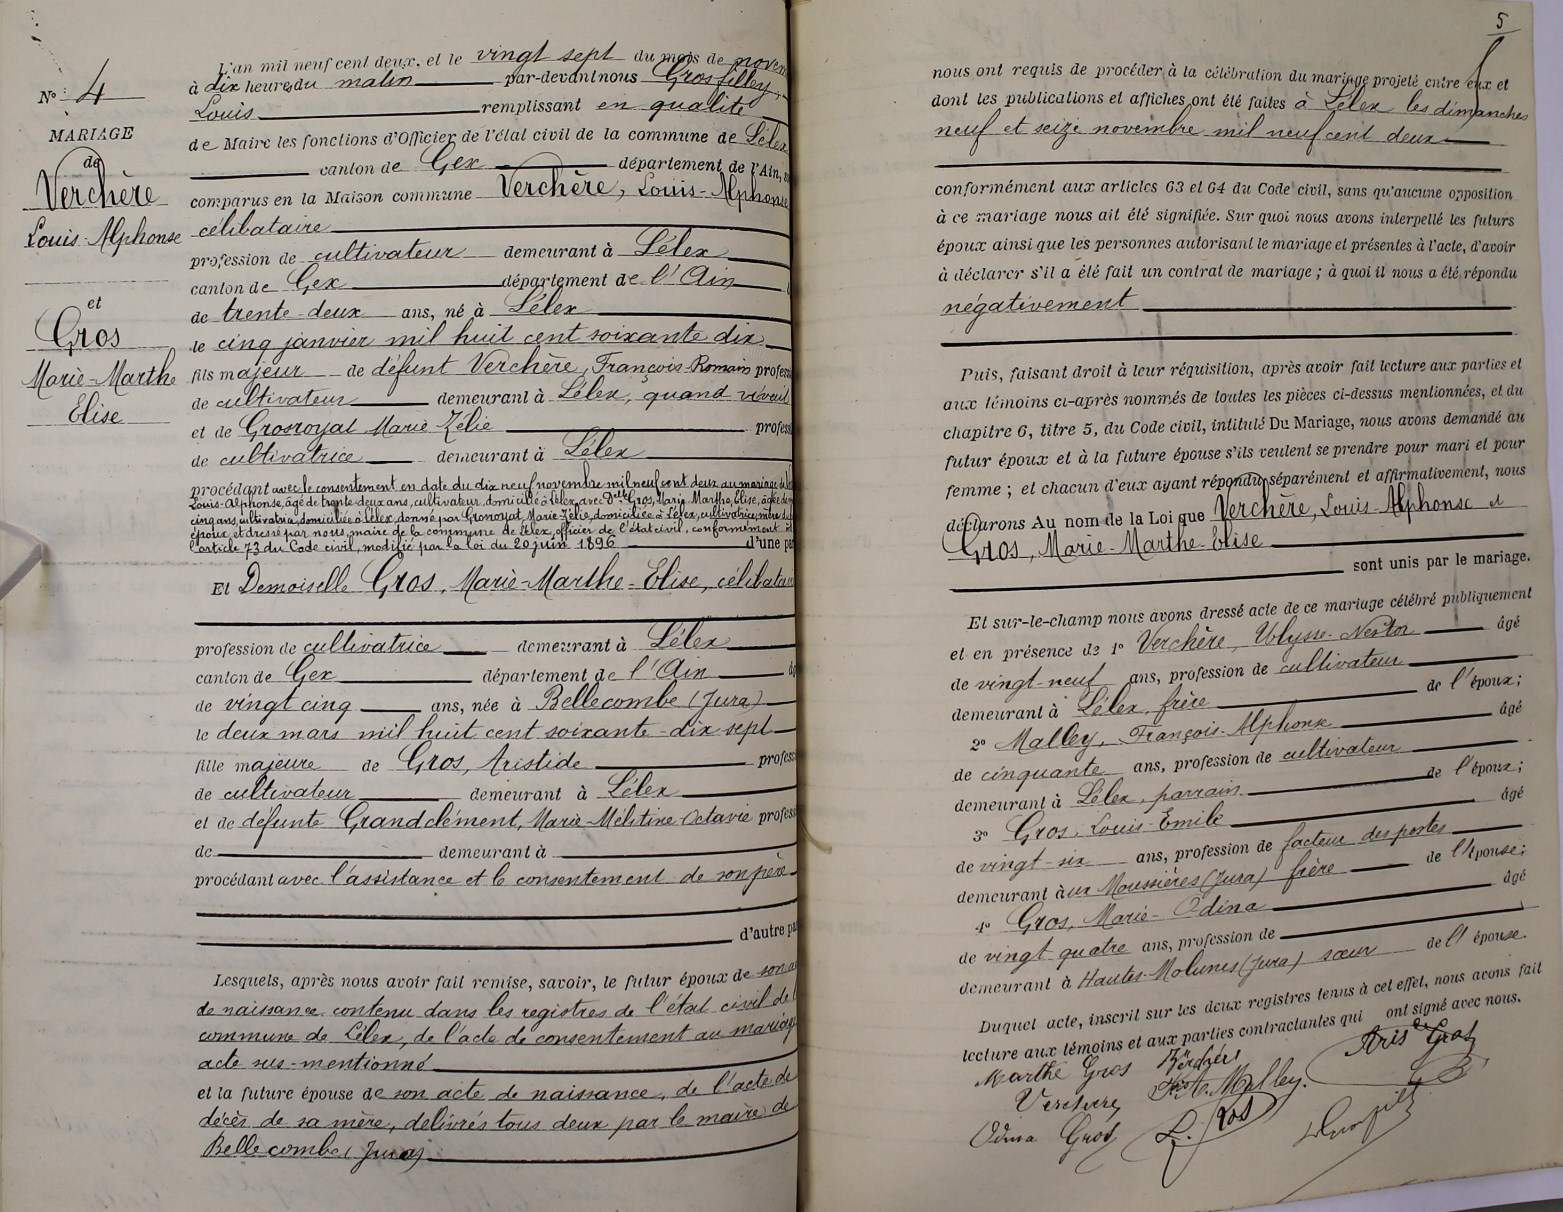 N° 4
MARIAGE
de
Verchère
Louis-Alphonse
et
Gros
Marie-Marthe
Elise
L'an mil neuf cent deux, et le vingt sept du mois de novem
à dix heures du matin par-devant nous Grosfilley,
Louis remplissant en qualité
de Maire les fonctions d'Officier de l'état civil de la commune de Lélex
canton de Gex département de l'Ain,
comparus en la Maison commune Verchère, Louis-Alphonse
célibataire
profession de cultivateur demeurant à Lélex
canton de Gex département de l'Ain
de trente-deux ans, né à Lélex
le cinq janvier mil huit cent soixante dix
fils majeur de défunt Verchère, François-Romain profess
de cultivateur demeurant à Lélex, quand vivait
et de Grosroyat Marie-Zélie profess
de cultivatrice demeurant à Lélex
procédant avec le consentement en date du dix neuf novembre mil neuf cent deux au mariage de
Louis-Alphonse, âgé de trente-deux ans, cultivateur, domicilié à Lélex, avec Dlle Gros, Marie-Marthe, Elise, âgée de
cinq ans, cultivatrice, domiciliée à Lélex, donné par Grosroyat, Marie-Zélie, domiciliée à Lélex, cultivatrice, mère du
époux, et dressé par nous, maire de la commune de Lélex, officier de l'état civil, conformément à
l'article 73 du Code civil, modifié par la loi du 20 juin 1896 d'une pa
Et Demoiselle Gros, Marie-Marthe-Elise, célibatai
profession de cultivatrice demeurant à Lélex
canton de Gex département de l'Ain âg
de vingt cinq ans, née à Bellecombe (Jura)
le deux mars mil huit cent soixante-dix sept
fille majeure de Gros, Aristide profess
de cultivateur demeurant à Lélex
et de défunte Grandclément, Marie-Mélitine Octavie profess
de demeurant à
procédant avec l'assistance et le consentement de son père
d'autre pa
Lesquels, après nous avoir fait remise, savoir, le futur époux de son a
de naissance contenu dans les registres de l'état civil de l
commune de Lélex, de l'acte de consentement au mariage
acte sus-mentionné
et la future épouse de son acte de naissance, de l'acte de
décès de sa mère, délivrés tous deux par le maire de
Bellecombe (Jura)
5
nous ont requis de procéder à la célébration du mariage projeté entre eux et
dont les publications et affiches ont été faites à Lélex les dimanches
neuf et seize novembre mil neuf cent deux
conformément aux articles 63 et 64 du Code civil, sans qu'aucune opposition
à ce mariage nous ait été signifiée. Sur quoi nous avons interpellé les futurs
époux ainsi que les personnes autorisant le mariage et présentes à l'acte, d'avoir
à déclarer s'il a été fait un contrat de mariage ; à quoi il nous a été répondu
négativement
Puis, faisant droit à leur réquisition, après avoir fait lecture aux parties et
aux témoins ci-après nommés de toutes les pièces ci-dessus mentionnées, et du
chapitre 6, titre 5, du Code civil, intitulé Du Mariage, nous avons demandé au
futur époux et à la future épouse s'ils veulent se prendre pour mari et pour
femme ; et chacun d'eux ayant répondu séparément et affirmativement, nous
déclarons Au nom de la Loi que Verchère, Louis-Alphonse et
Gros, Marie-Marthe-Elise
sont unis par le mariage.
Et sur-le-champ nous avons dressé acte de ce mariage célébré publiquement
et en présence de 1° Verchère, Ulysse-Nestor âgé
de vingt-neuf ans, profession de cultivateur
demeurant à Lélex, frère de l'époux;
2° Malley, François-Alphonse âgé
de cinquante ans, profession de cultivateur
demeurant à Lélex, parrain de l'époux;
3° Gros, Louis-Emile âgé
de vingt-six ans, profession de facteur des postes
demeurant aux Moussières (Jura) frère de l'épouse;
4° Gros, Marie-Odina âgé
de vingt quatre ans, profession de
demeurant à Hautes-Molunes (Jura) sœur de l'épouse.
Duquel acte, inscrit sur les deux registres tenus à cet effet, nous avons fait
lecture aux témoins et aux parties contractantes qui ont signé avec nous.
Marthe Gros Verchère Aris de Gros
Verchère Malley.
Odina Gros L. Gros